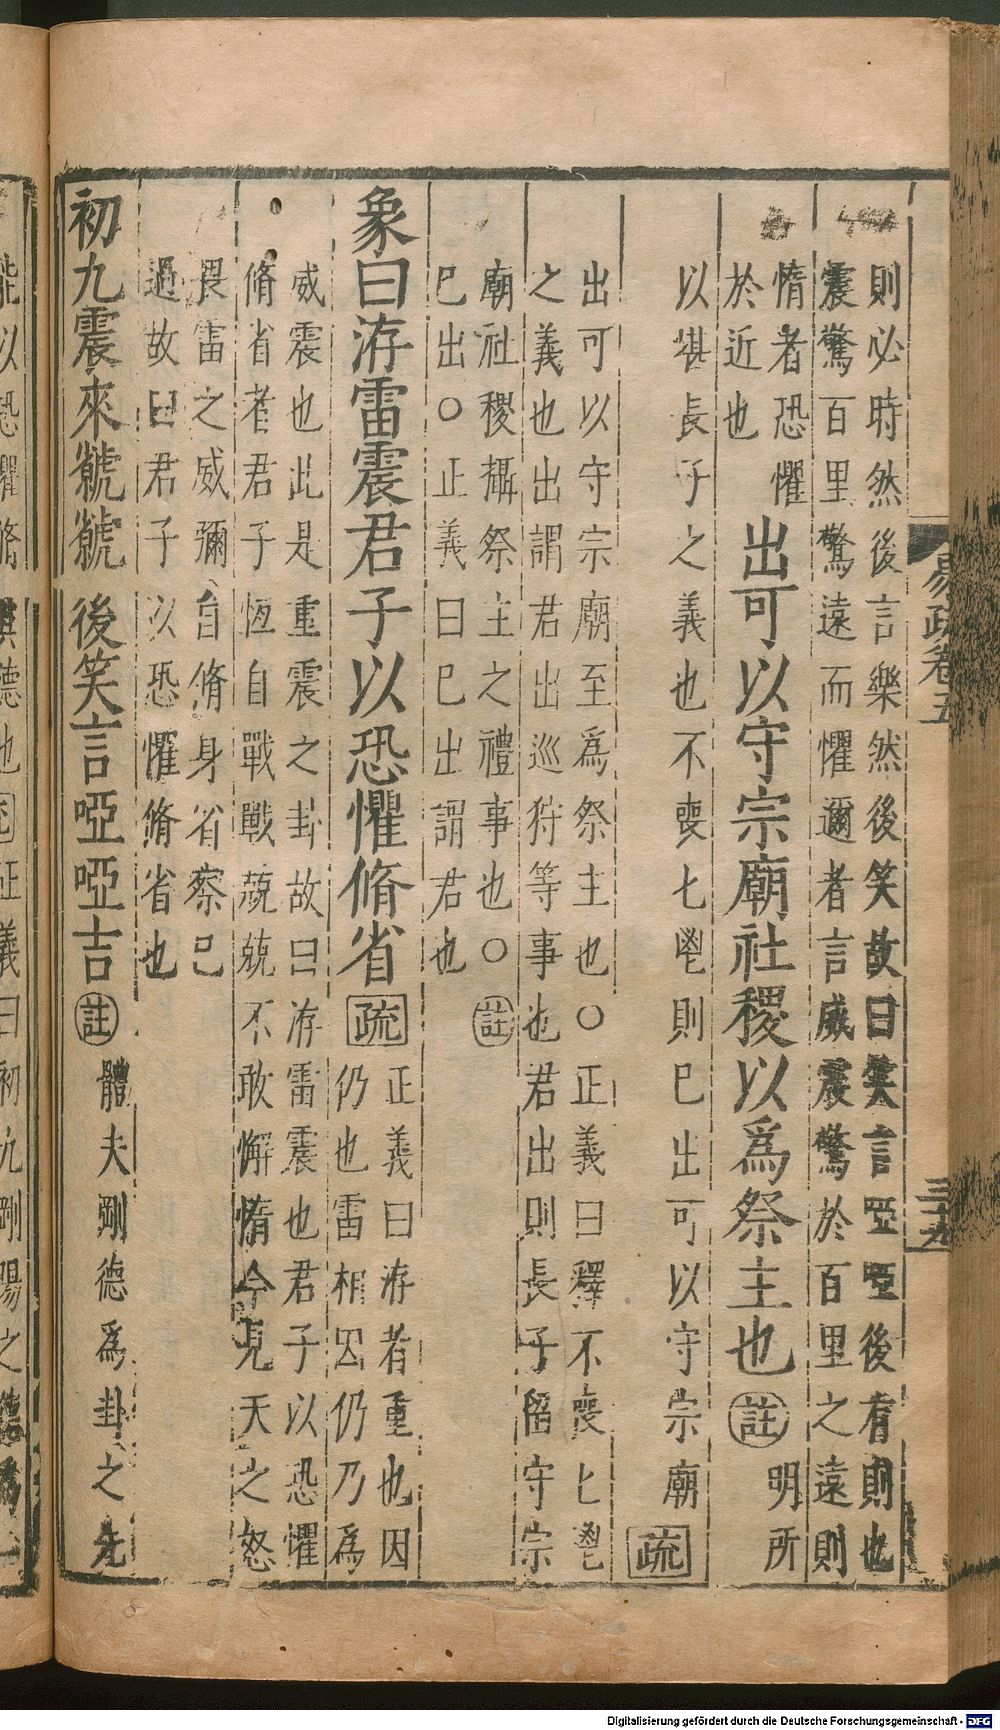 易疏卷五
三十九
則必時然後言樂然後笑故曰笑言啞啞後有則也
震驚百里驚遠而懼邇者言威震驚於百里之遠則
惰者恐懼
於近也
出可以守宗廟社稷以爲祭主也
註
明所
以堪長子之義也不喪七鬯則巳出可以守宗廟
疏
出可以守宗廟至爲祭主也○正義曰釋不喪匕鬯
之義也出謂君出巡狩等事也君出則長子留守宗
廟社稷攝祭主之禮事也○
註
巳出○正義曰巳出謂君也
象曰洊雷震君子以恐懼脩省
疏
正義曰洊者重也因
仍也雷相因仍乃爲
威震也此是重震之卦故曰洊雷震也君子以恐懼
脩省者君子恆自戰戰兢兢不敢懈惰今見天之怒
畏雷之威彌自脩身省察己
過故曰君子以恐懼脩省也
初九震來虩虩後笑言啞啞吉
註
體夫剛德爲卦之先
能以恐懼脩
其德也
疏
正義曰初九剛陽之